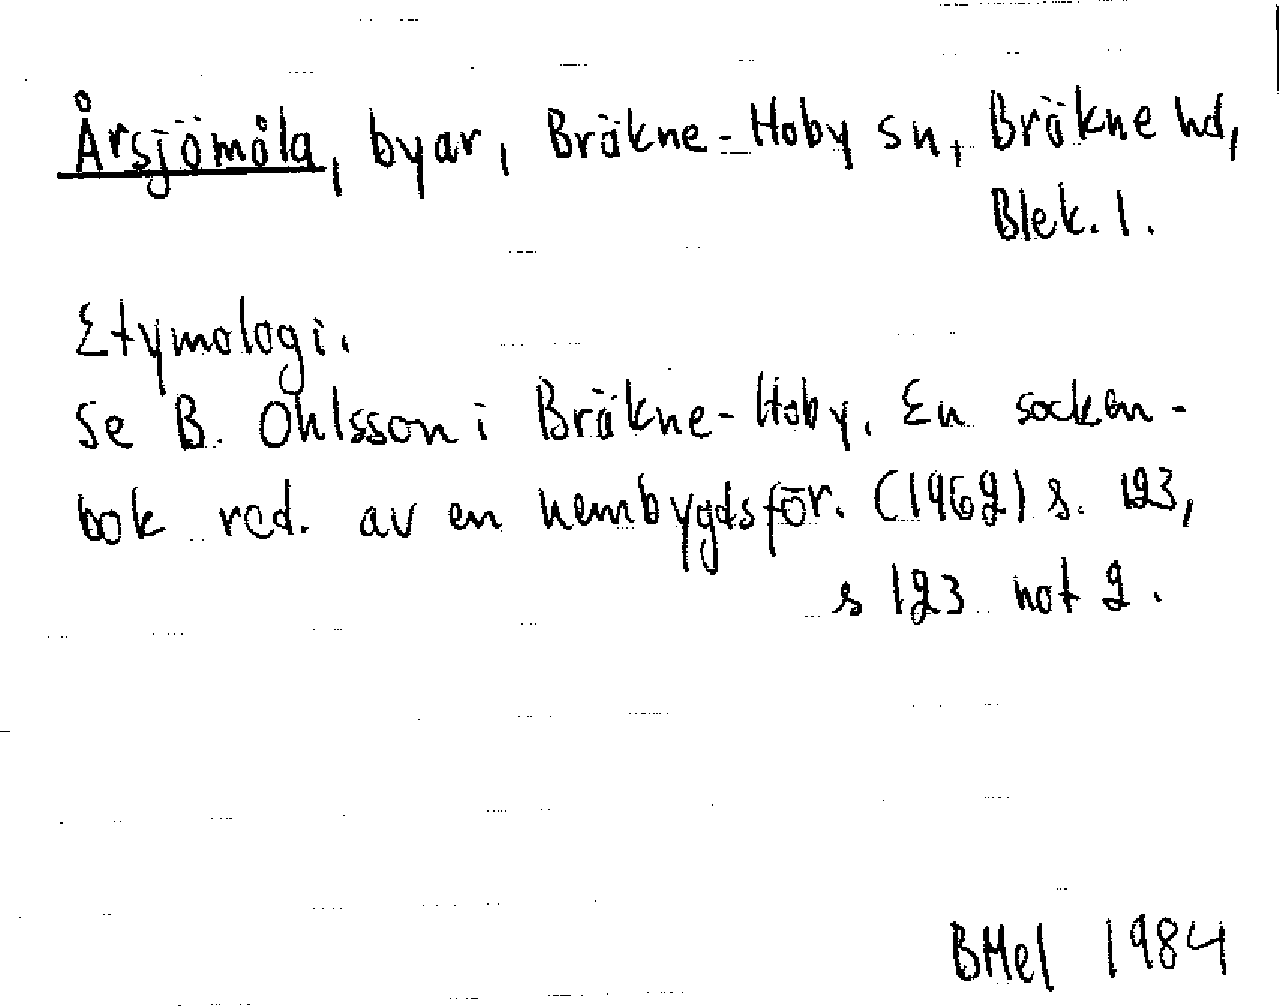 Årsjömåla, byar, Bräkne-Hoby sn, Bräkne hd,
Blek. l.
Etymologi.
Se B. Ohlsson i Bräkne-Hoby. En socken-
bok red. av en hembygdsför. (1962) s. 123,
s 123 not 2.
BMel 1984